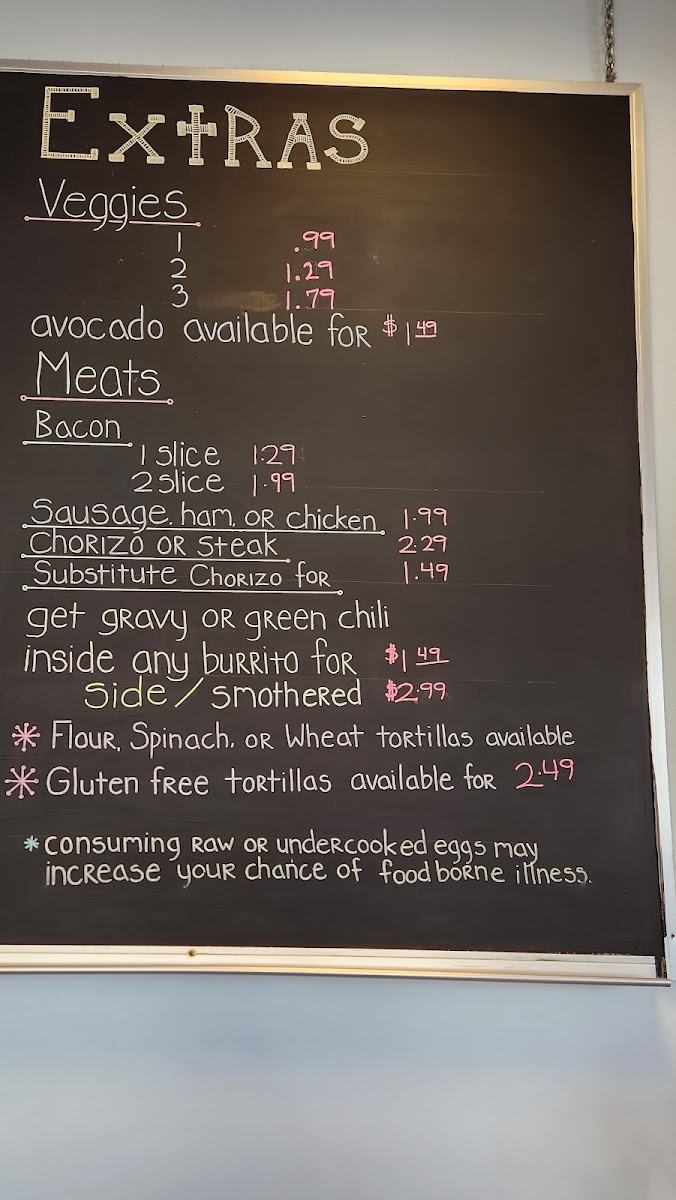 Extras
Veggies
1 .99
2 1.29
3 1.79
avocado available for $1 49
Meats
Bacon
1 slice 1.29¢
2 slice 1.99
Sausage, ham, or chicken 1.99
Chorizo or steak 2.29
Substitute Chorizo for 1.49
get gravy or green chili
inside any burrito for $1 49
side / smothered $2.99
* Flour, Spinach, or Wheat tortillas available
* Gluten free tortillas available for 2.49
* consuming raw or undercooked eggs may
increase your chance of food borne illness.